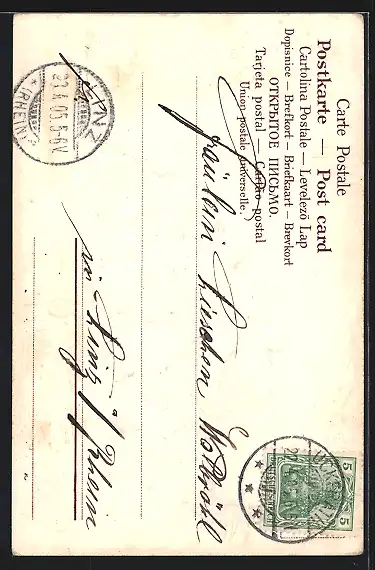 Carte Postale
Postkarte — Post card
Cartolina Postale — Levelező Lap
Dopisnice — Brefkort — Briefkaart — Brevkort
ОТКРЫТОЕ ПИСЬМО.
Tarjeta postal — Cartão postal
Union postale universelle.
Fräulein Lieschen
in Linz a/Rhein
LINZ
(RHEIN)
23.4.05.5-6V.
5
5